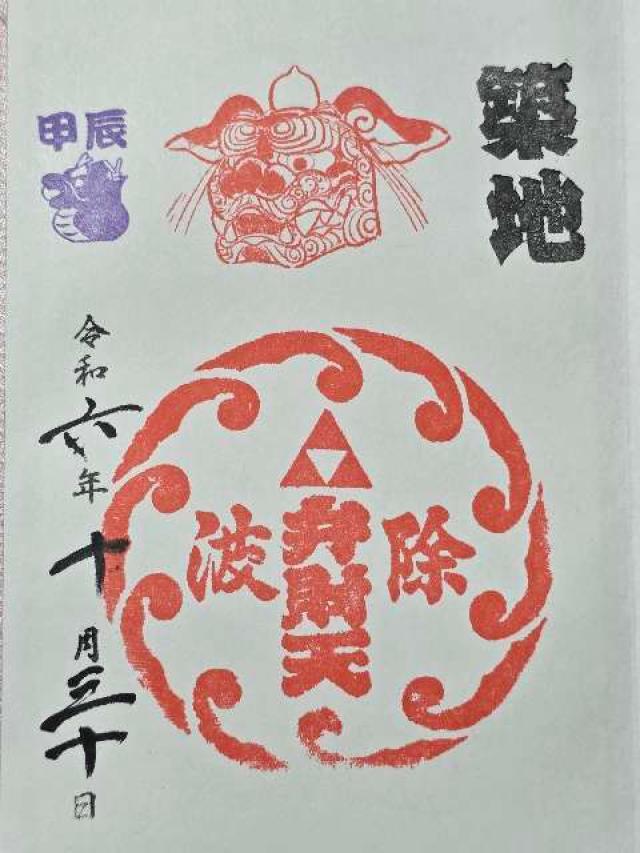 築地
除 弁財天 波
甲辰
令和六年十月三十日